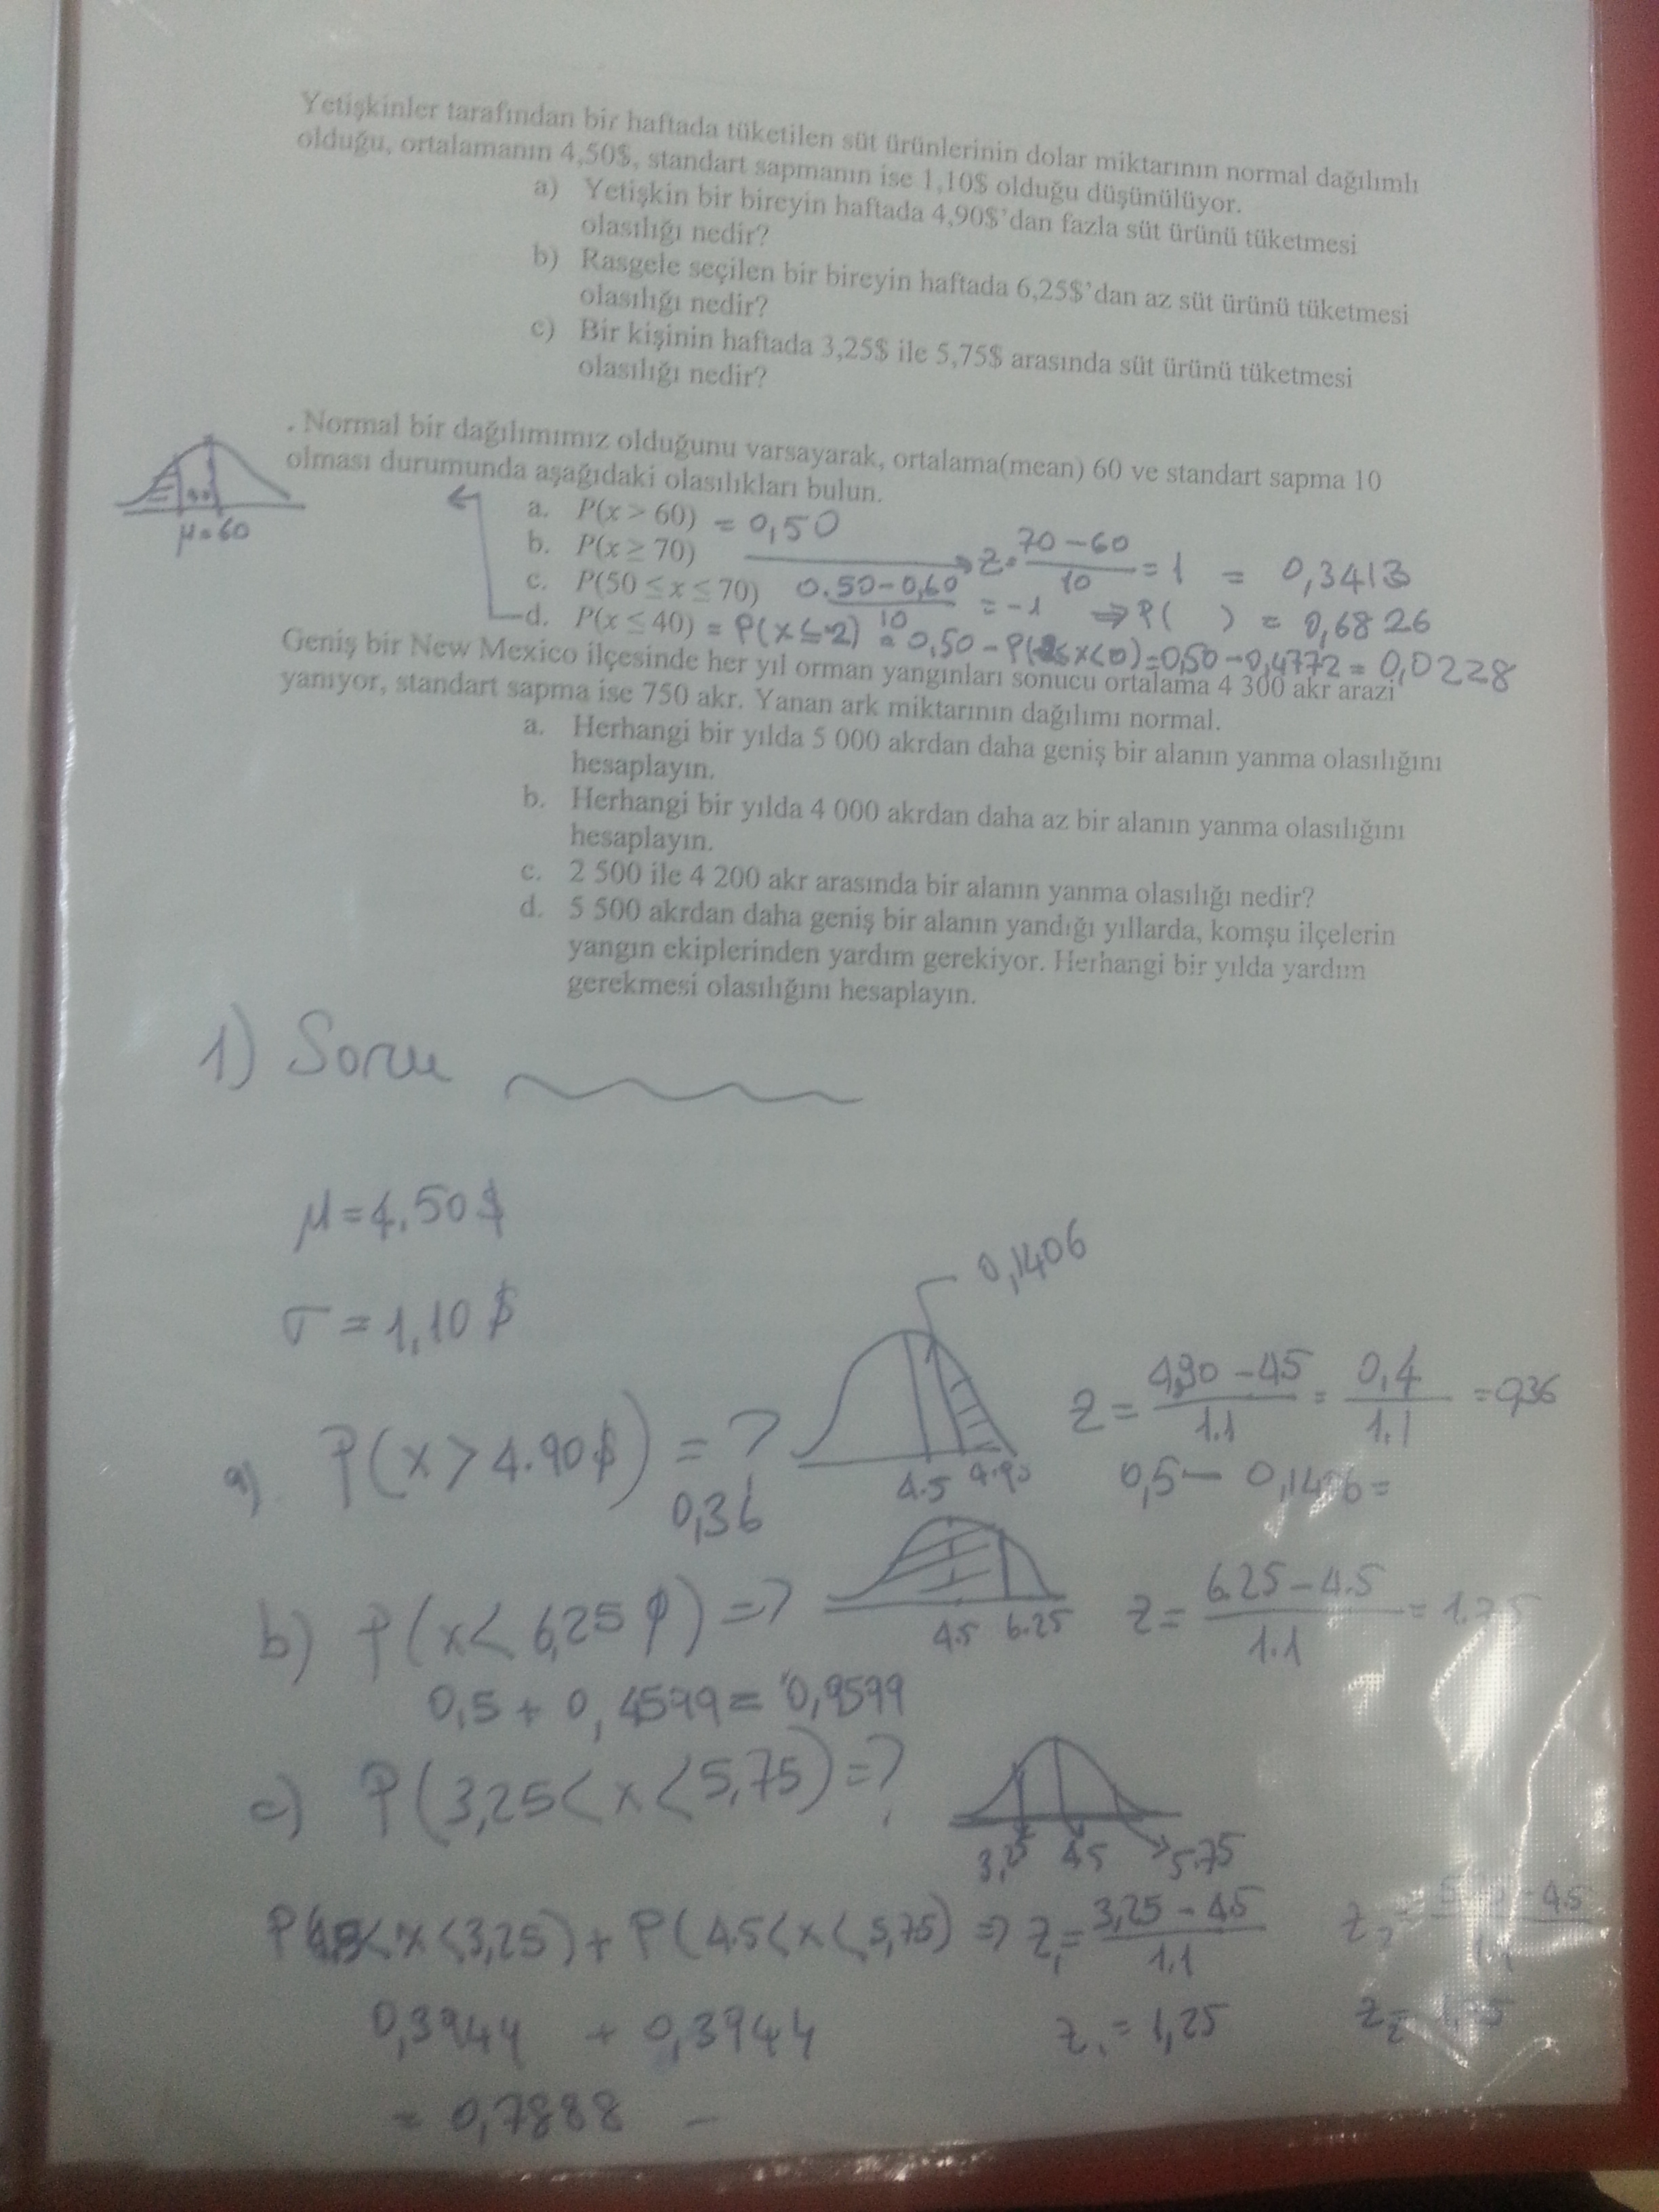 Yetişkinler tarafından bir haftada tüketilen süt ürünlerinin dolar miktarının normal dağılımlı
olduğu, ortalamanın 4,50$, standart sapmanın ise 1,10$ olduğu düşünülüyor.
a) Yetişkin bir bireyin haftada 4,90$'dan fazla süt ürünü tüketmesi
olasılığı nedir?
b) Rasgele seçilen bir bireyin haftada 6,25$'dan az süt ürünü tüketmesi
olasılığı nedir?
c) Bir kişinin haftada 3,25$ ile 5,75$ arasında süt ürünü tüketmesi
olasılığı nedir?
. Normal bir dağılımımız olduğunu varsayarak, ortalama(mean) 60 ve standart sapma 10
olması durumunda aşağıdaki olasılıkları bulun.
μ=60
a. P(x > 60) = 0,50
b. P(x ≥ 70) z = 70-60 / 10 = 1 = 0,3413
c. P(50 ≤ x ≤ 70) 0.50-0,60 / 10 = -1 ⇒ P( ) = 0,6826
d. P(x ≤ 40) = P(x ≤ -2) = 0,50 - P( x<0)=0,50-0,4772 = 0,0228
Geniş bir New Mexico ilçesinde her yıl orman yangınları sonucu ortalama 4 300 akr arazi
yanıyor, standart sapma ise 750 akr. Yanan ark miktarının dağılımı normal.
a. Herhangi bir yılda 5 000 akrdan daha geniş bir alanın yanma olasılığını
hesaplayın.
b. Herhangi bir yılda 4 000 akrdan daha az bir alanın yanma olasılığını
hesaplayın.
c. 2 500 ile 4 200 akr arasında bir alanın yanma olasılığı nedir?
d. 5 500 akrdan daha geniş bir alanın yandığı yıllarda, komşu ilçelerin
yangın ekiplerinden yardım gerekiyor. Herhangi bir yılda yardım
gerekmesi olasılığını hesaplayın.
1) Soru
μ=4,50$
σ = 1,10$
0,1406
a) P(x > 4.90$) = ? 4.5 4.90 z = 4,90 - 4.5 / 1.1 = 0,4 / 1.1 = 0,36
0,36 0,5 - 0,1406 =
b) P(x < 6,25$) = ? 4.5 6.25 z = 6.25 - 4.5 / 1.1 =
0,5 + 0,4599 = 0,9599
c) P(3,25 < x < 5,75) = ?
3,25 4.5 5.75
< x < 3,25) + P(4.5 < x < 5,75) ⇒ z₁ = 3,25 - 4.5 / 1.1 z₂ = - 4.5 / 1.1
0,3944 + 0,3944 z₁ = 1,25 z₂ =
= 0,7888